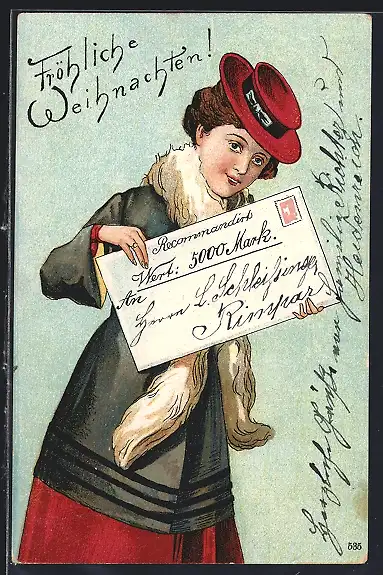 Fröhliche
Weihnachten!
Recommandirt
Wert: 5000 Mark.
An
Herrn L. Schleißinger
Rimpar
von Familie Richter und
Heidenreich.
535